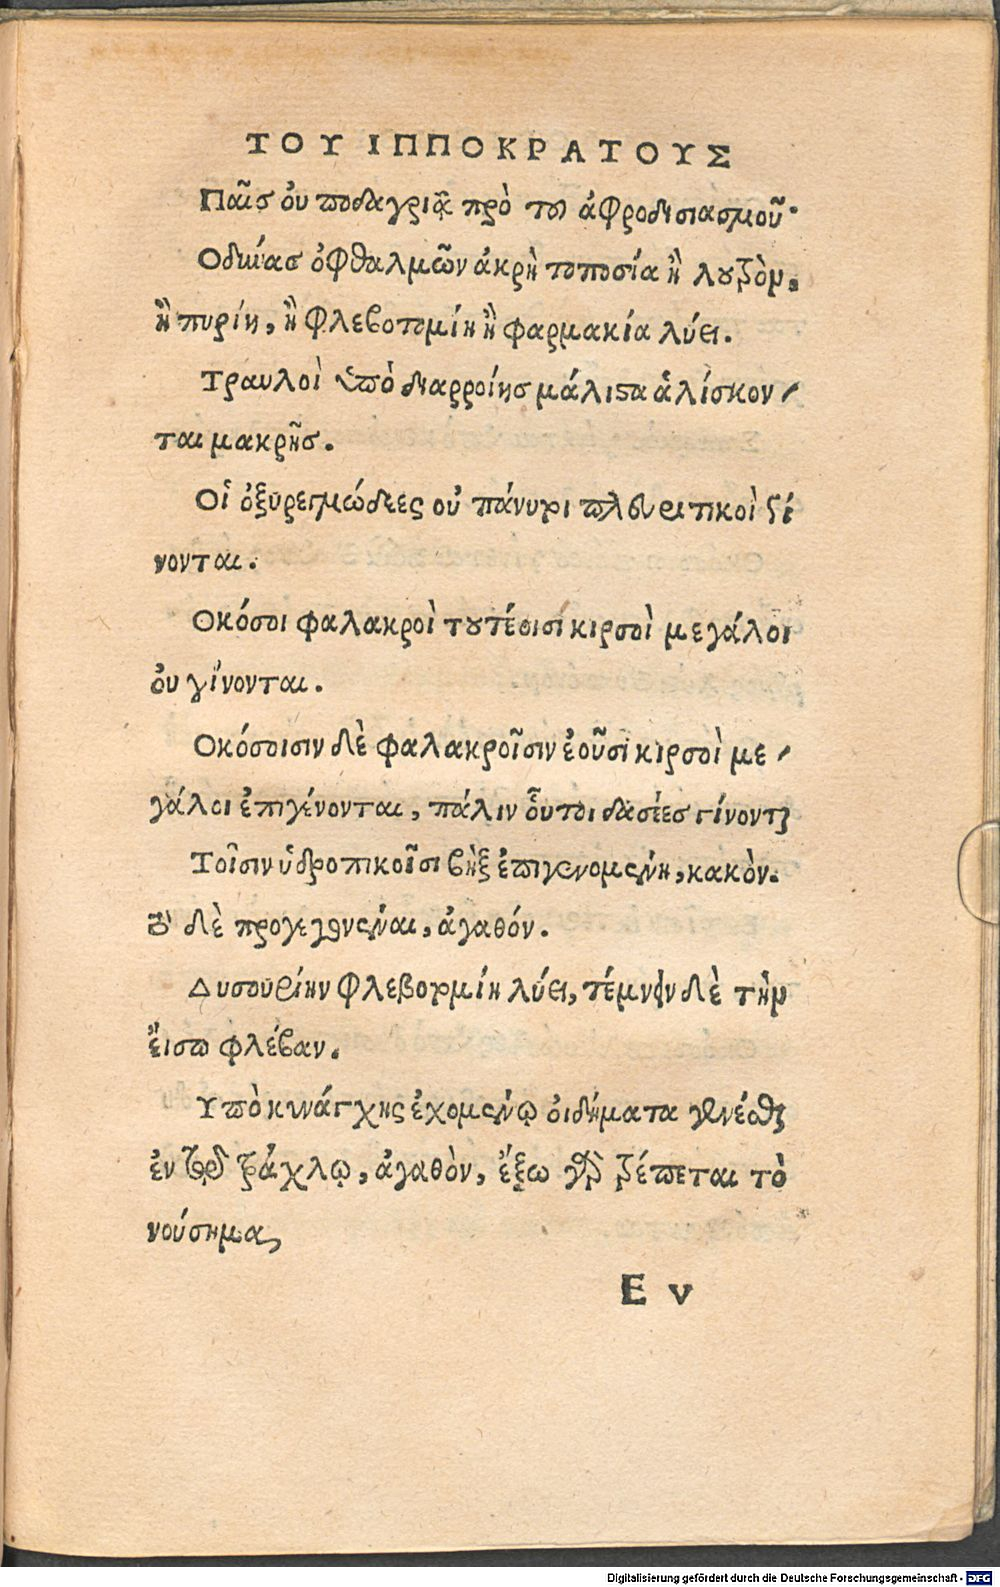 ΤΟΥ ΙΠΠΟΚΡΑΤΟΥΣ
Παῖς ὀυ ποδαγριᾷ πρὸ τοῦ ἀφροδισιασμοῦ·
Οδύνας ὀφθαλμῶν ἀκρὴ τοποσία ἢ λουτρὸν.
ἢ πυρίη, ἢ φλεβοτομίη ἢ φαρμακία λύει.
Τραυλοὶ ὑπὸ διαρροίης μάλιστα ἁλίσκον-
ται μακρῆς.
Οἱ ὀξυρειγμώδεες οὐ πάνυτι πλευριτικοὶ γί
νονται.
Οκόσοι φαλακροὶ τουτέοισί κιρσοὶ μεγάλοι
ὀυ γίνονται.
Οκόσοισιν δὲ φαλακροῖσιν ἐοῦσι κιρσοὶ με-
γάλοι ἐπιγένονται, πάλιν ὅυτοι δασέες γίνονται
Τοῖσιν ὑδροπικοῖσι βὴξ ἐπιγενομένη, κακὸν.
τὸ δὲ προγεγονέναι, ἀγαθόν.
Δυσουρίην φλεβοτομίη λύει, τέμνειν δὲ τὴν
ἔισω φλέβαν.
Υπὸ κυνάγχης ἐχομένῳ ὀιδήματα γενέσθαι
ἐν τῷ τραχλῳ, ἀγαθὸν, ἔξω γὰρ τρέπεται τὸ
νούσημα,
Εν
Digitalisierung gefördert durch die Deutsche Forschungsgemeinschaft - DFG